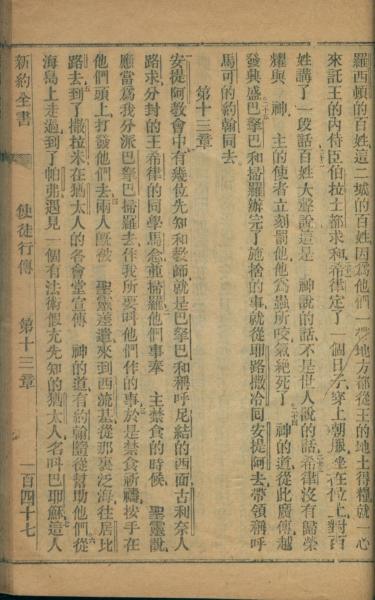 羅西頓的百姓、這二城的百姓、因爲他們一帶地方都從王的地土得糧、就一心
來託王的內侍臣伯拉士都求和希律定了一個日子、穿上朝服、坐在位上、對百
姓講了一段話百姓大聲說、這是 神說的話、不是世人說的話希律沒有歸榮
耀與 神、 主的使者立刻罰他、他爲蟲所咬、氣絕死了 神的道從此廣傳越
發興盛巴拏巴和掃羅辦完了施捨的事、就從耶路撒冷同安提阿去、帶領稱呼
馬可的約翰同去
第十三章
安提阿教會中有幾位先知和教師就是巴拏巴和稱呼尼結的西面古利奈人
路求分封的王希律的同學馬念並掃羅他們事奉 主禁食的時候 聖靈說、
應當爲我分派巴拏巴掃羅去作我所要叫他們作的事於是禁食祈禱按手在
他們頭上打發他們去兩人旣被 聖靈差遣來到西流基從那裏泛海往居比
路去到了撒拉米在猶太人的各會堂宣傳 神的道有約翰隨從幫助他們從
海島上走過到了帕弗遇見一個有法術假充先知的猶太人名叫巴耶穌這人
新約全書 使徒行傳 第十三章 一百四十七